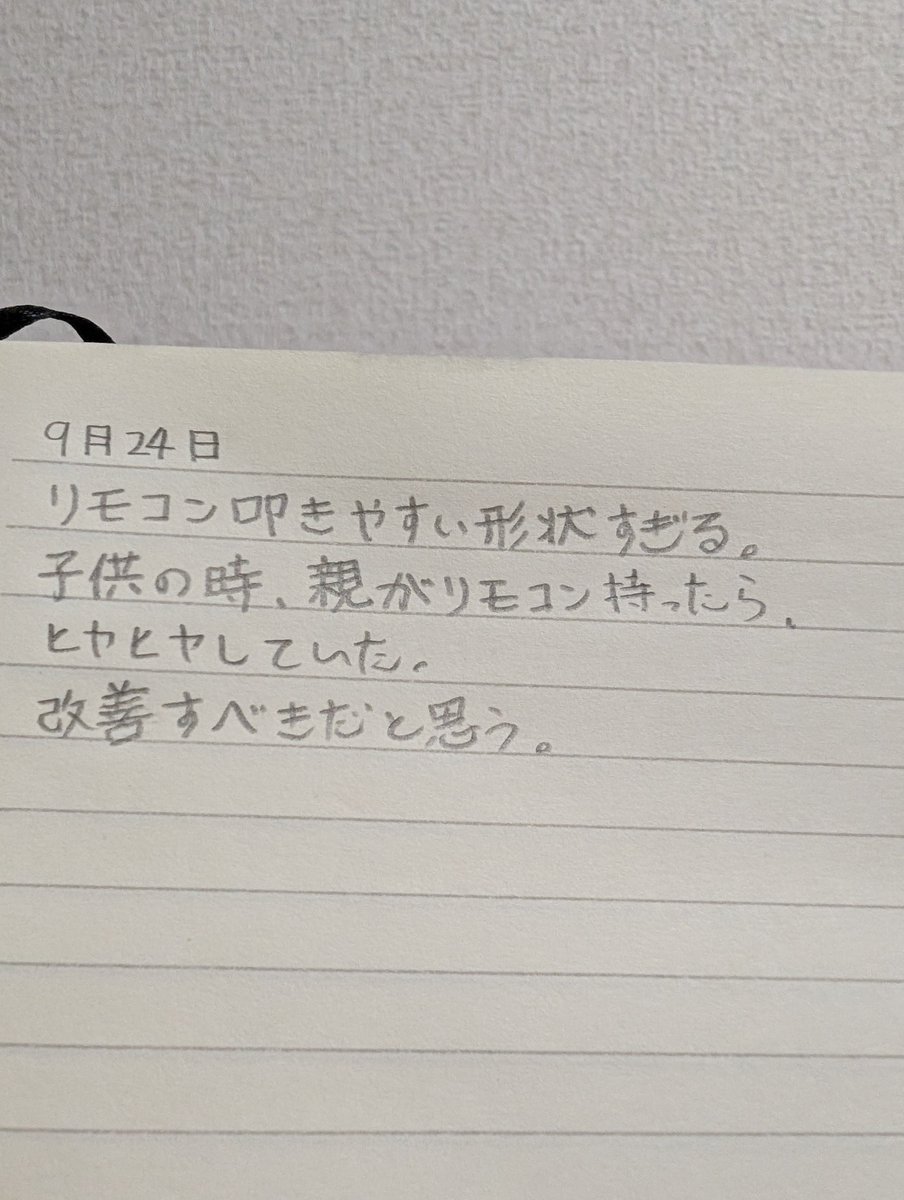 9月24日
リモコン叩きやすい形状すぎる。
子供の時、親がリモコン持ったら、
ヒヤヒヤしていた。
改善すべきだと思う。